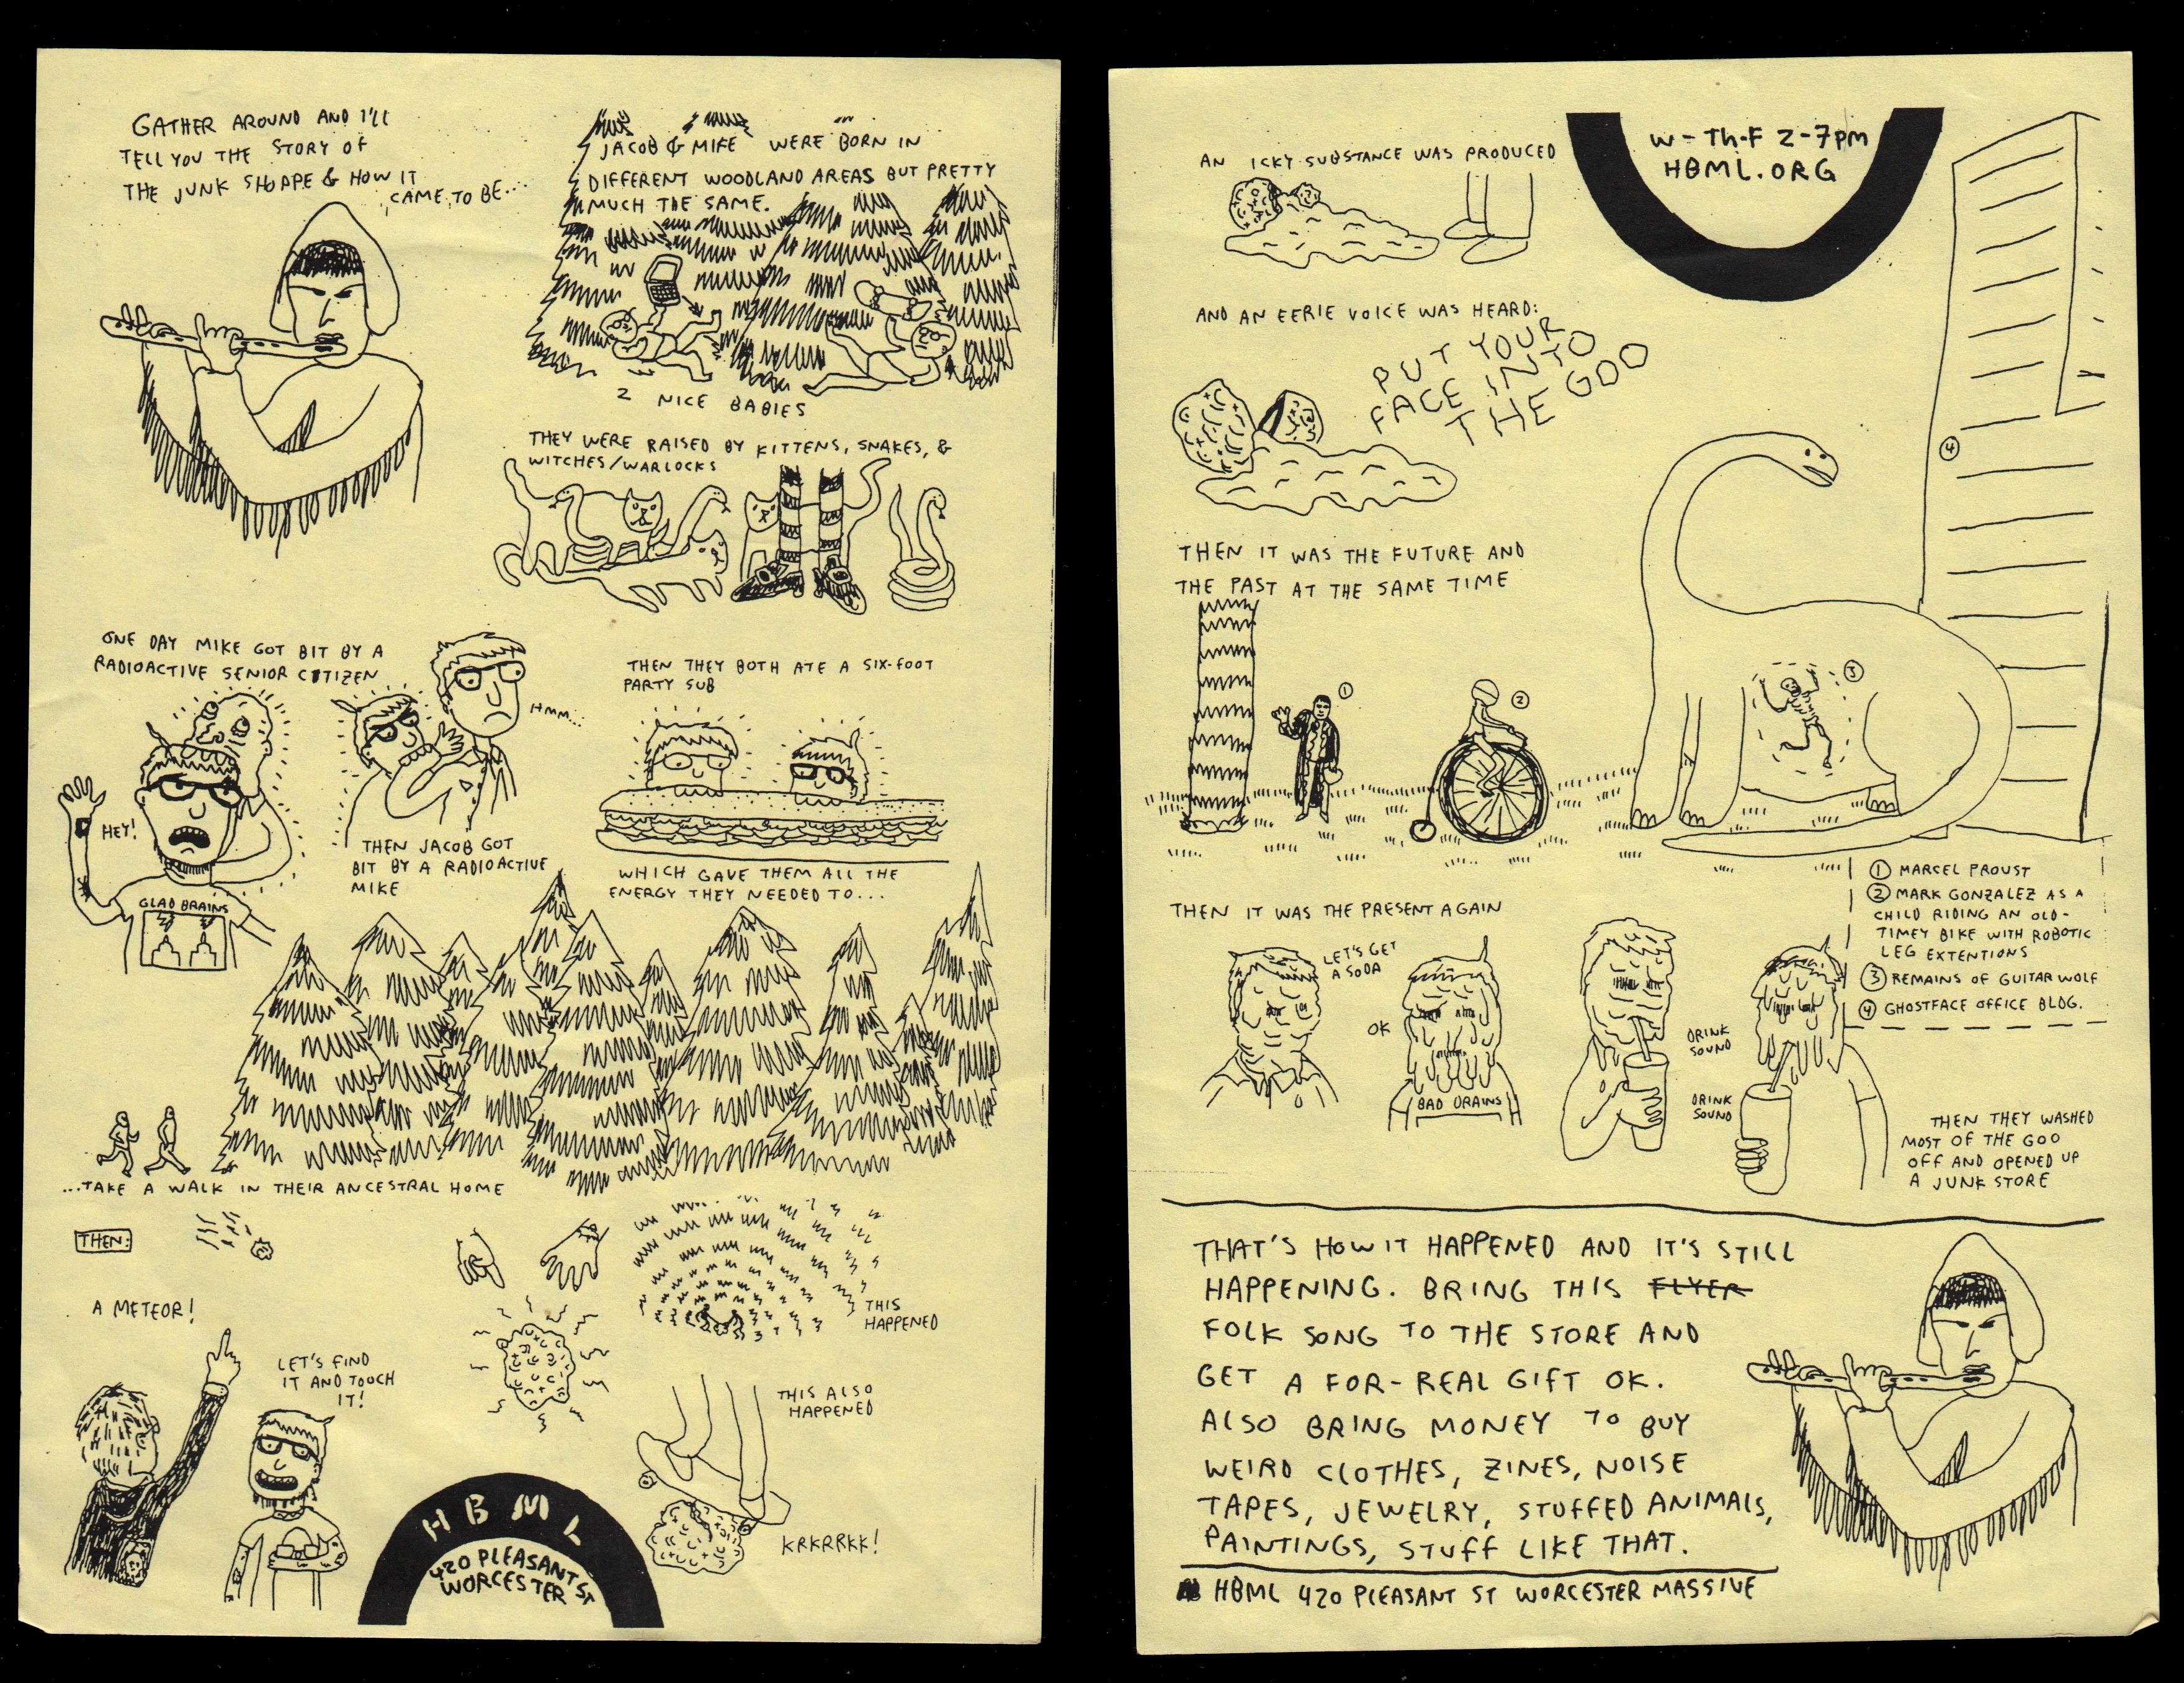 GATHER AROUND AND I'LL
TELL YOU THE STORY OF
THE JUNK SHOPPE & HOW IT
CAME TO BE....
JACOB & MIKE WERE BORN IN
DIFFERENT WOODLAND AREAS BUT PRETTY
MUCH THE SAME.
2 NICE BABIES
THEY WERE RAISED BY KITTENS, SNAKES, &
WITCHES/WARLOCKS
ONE DAY MIKE GOT BIT BY A
RADIOACTIVE SENIOR CITIZEN
HEY!
GLAD BRAINS
HMM...
THEN JACOB GOT
BIT BY A RADIOACTIVE
MIKE
THEN THEY BOTH ATE A SIX-FOOT
PARTY SUB
WHICH GAVE THEM ALL THE
ENERGY THEY NEEDED TO...
...TAKE A WALK IN THEIR ANCESTRAL HOME
THEN:
A METEOR!
LET'S FIND
IT AND TOUCH
IT!
THIS
HAPPENED
THIS ALSO
HAPPENED
KRKRRKK!
HBML
420 PLEASANT ST
WORCESTER
AN ICKY SUBSTANCE WAS PRODUCED
W-Th-F 2-7pm
HBML.ORG
AND AN EERIE VOICE WAS HEARD:
PUT YOUR
FACE INTO
THE GOO
THEN IT WAS THE FUTURE AND
THE PAST AT THE SAME TIME
1
2
3
4
① MARCEL PROUST
② MARK GONZALEZ AS A
CHILD RIDING AN OLD-
TIMEY BIKE WITH ROBOTIC
LEG EXTENTIONS
③ REMAINS OF GUITAR WOLF
④ GHOSTFACE OFFICE BLDG.
THEN IT WAS THE PRESENT AGAIN
LET'S GET
A SODA
OK
BAD DRAINS
DRINK
SOUND
DRINK
SOUND
THEN THEY WASHED
MOST OF THE GOO
OFF AND OPENED UP
A JUNK STORE
THAT'S HOW IT HAPPENED AND IT'S STILL
HAPPENING. BRING THIS FLYER
FOLK SONG TO THE STORE AND
GET A FOR-REAL GIFT OK.
ALSO BRING MONEY TO BUY
WEIRD CLOTHES, ZINES, NOISE
TAPES, JEWELRY, STUFFED ANIMALS,
PAINTINGS, STUFF LIKE THAT.
HBML 420 PLEASANT ST WORCESTER MASSIVE